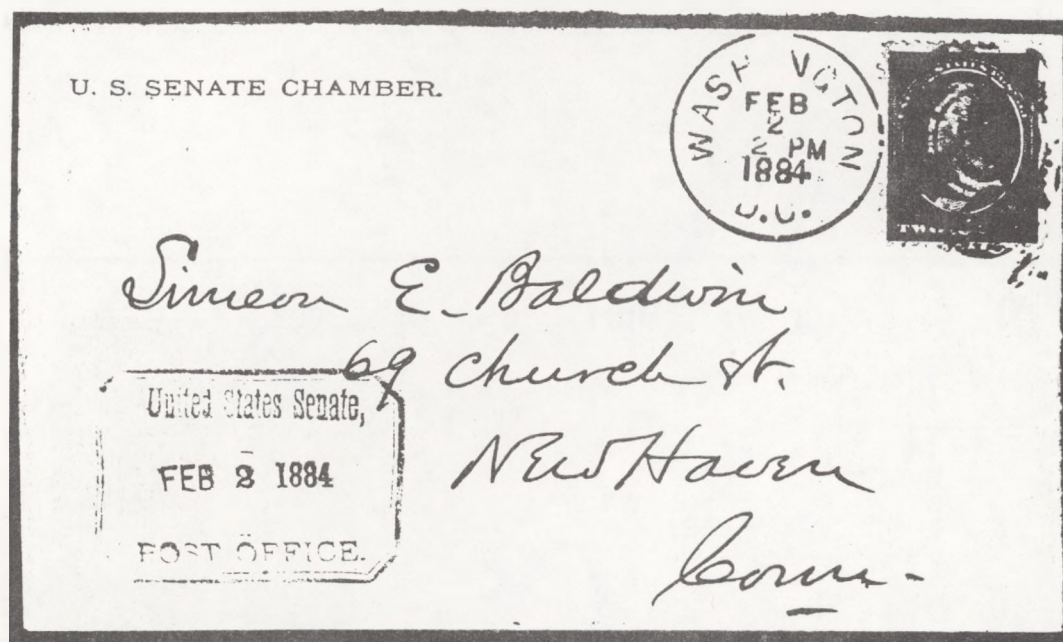 U. S. SENATE CHAMBER.
WASH NGTON
FEB
2
2 PM
1884
D.C.
Simeon E. Baldwin
69 Church St.
New Haven
Conn.
United States Senate,
FEB 2 1884
POST OFFICE.